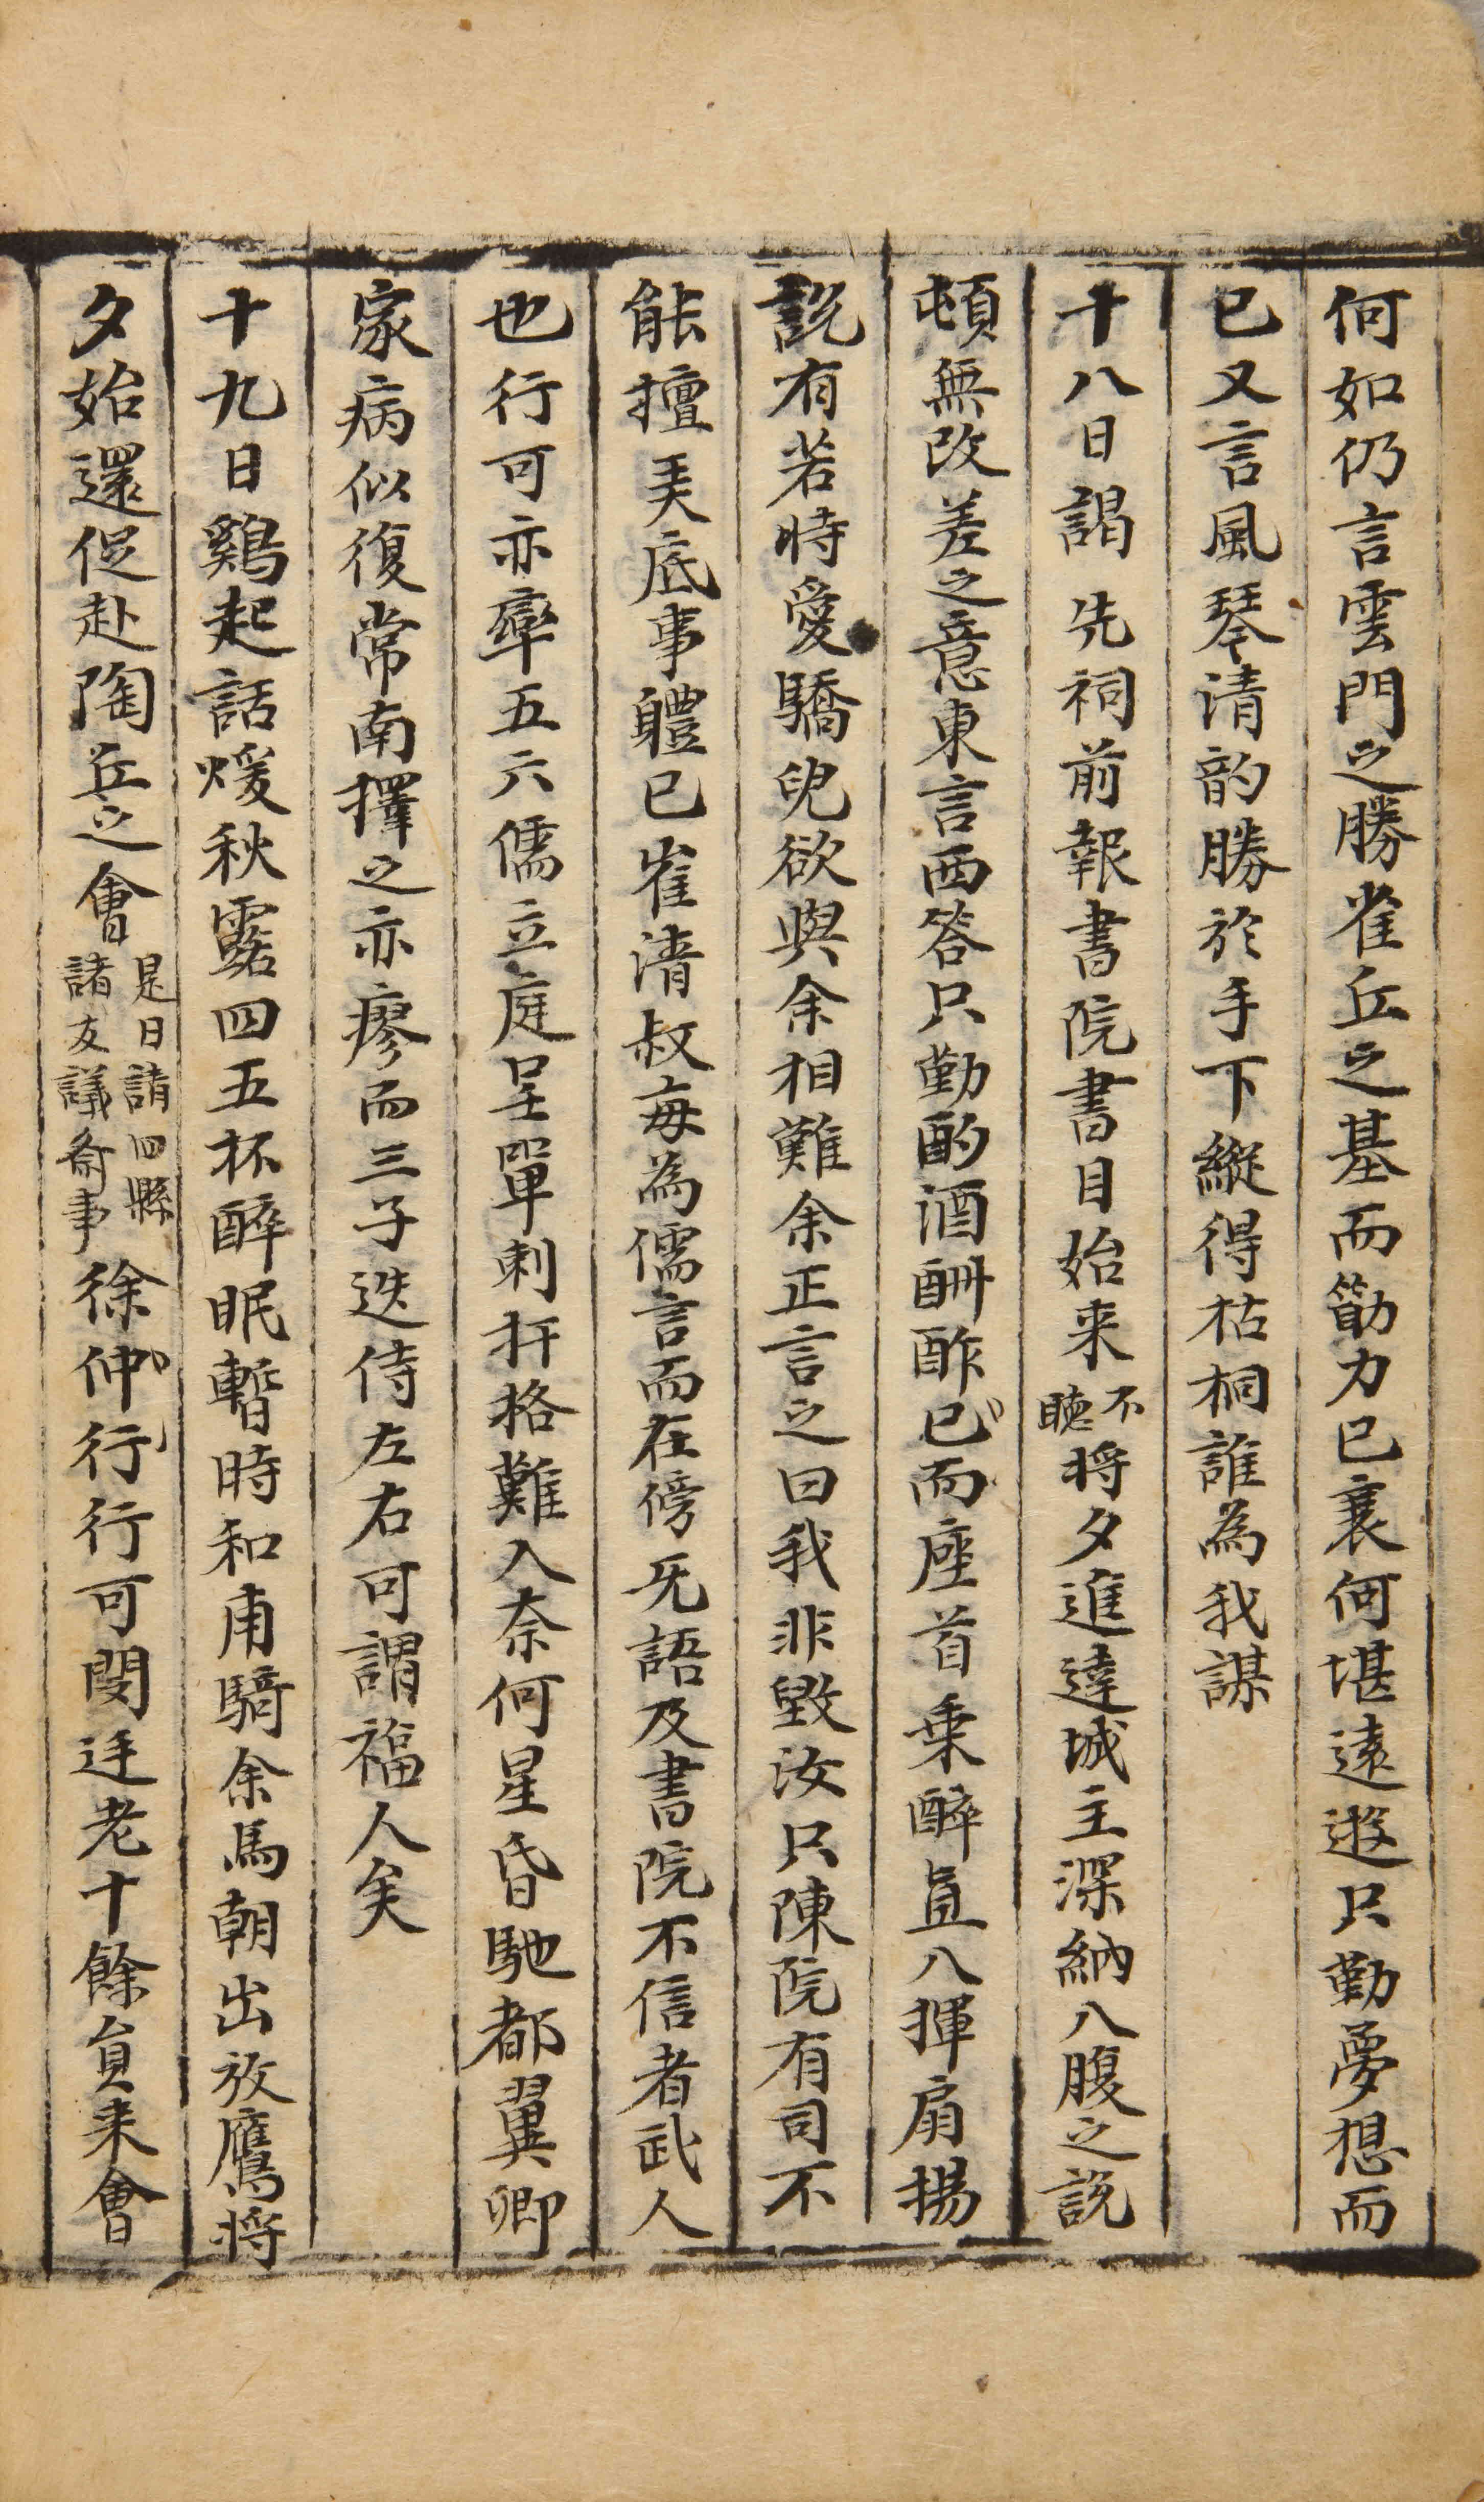 何如仍言雲門之勝雀丘之基而筋力已衰何堪遠遊只勤夢想而
已又言風琴清韵勝於手下縱得枯桐誰為我謀
十八日謁先祠前報書院書目始来不聽将夕進達城主深納八腹之説
頓無改差之意東言西答只勤酌酒酬酢已而座首乗醉直八揮扇揚
説有若時愛驕兒欲與余相難余正言之曰我非毀汝只陳院有司不
能擅美底事軆已崔清叔每為儒言而在傍旡語及書院不信者武人
也行可亦率五六儒立庭呈單刺扞格難入奈何星昏馳都翼卿
家病似復常南擇之亦瘳而三子迭侍左右可謂福人矣
十九日鷄起話煖秋露四五杯醉眠暫時和甫騎余馬朝出放鷹将
夕始還促赴陶丘之會是日請四縣諸友議斎事徐仲行行可閔迋老十餘員来會